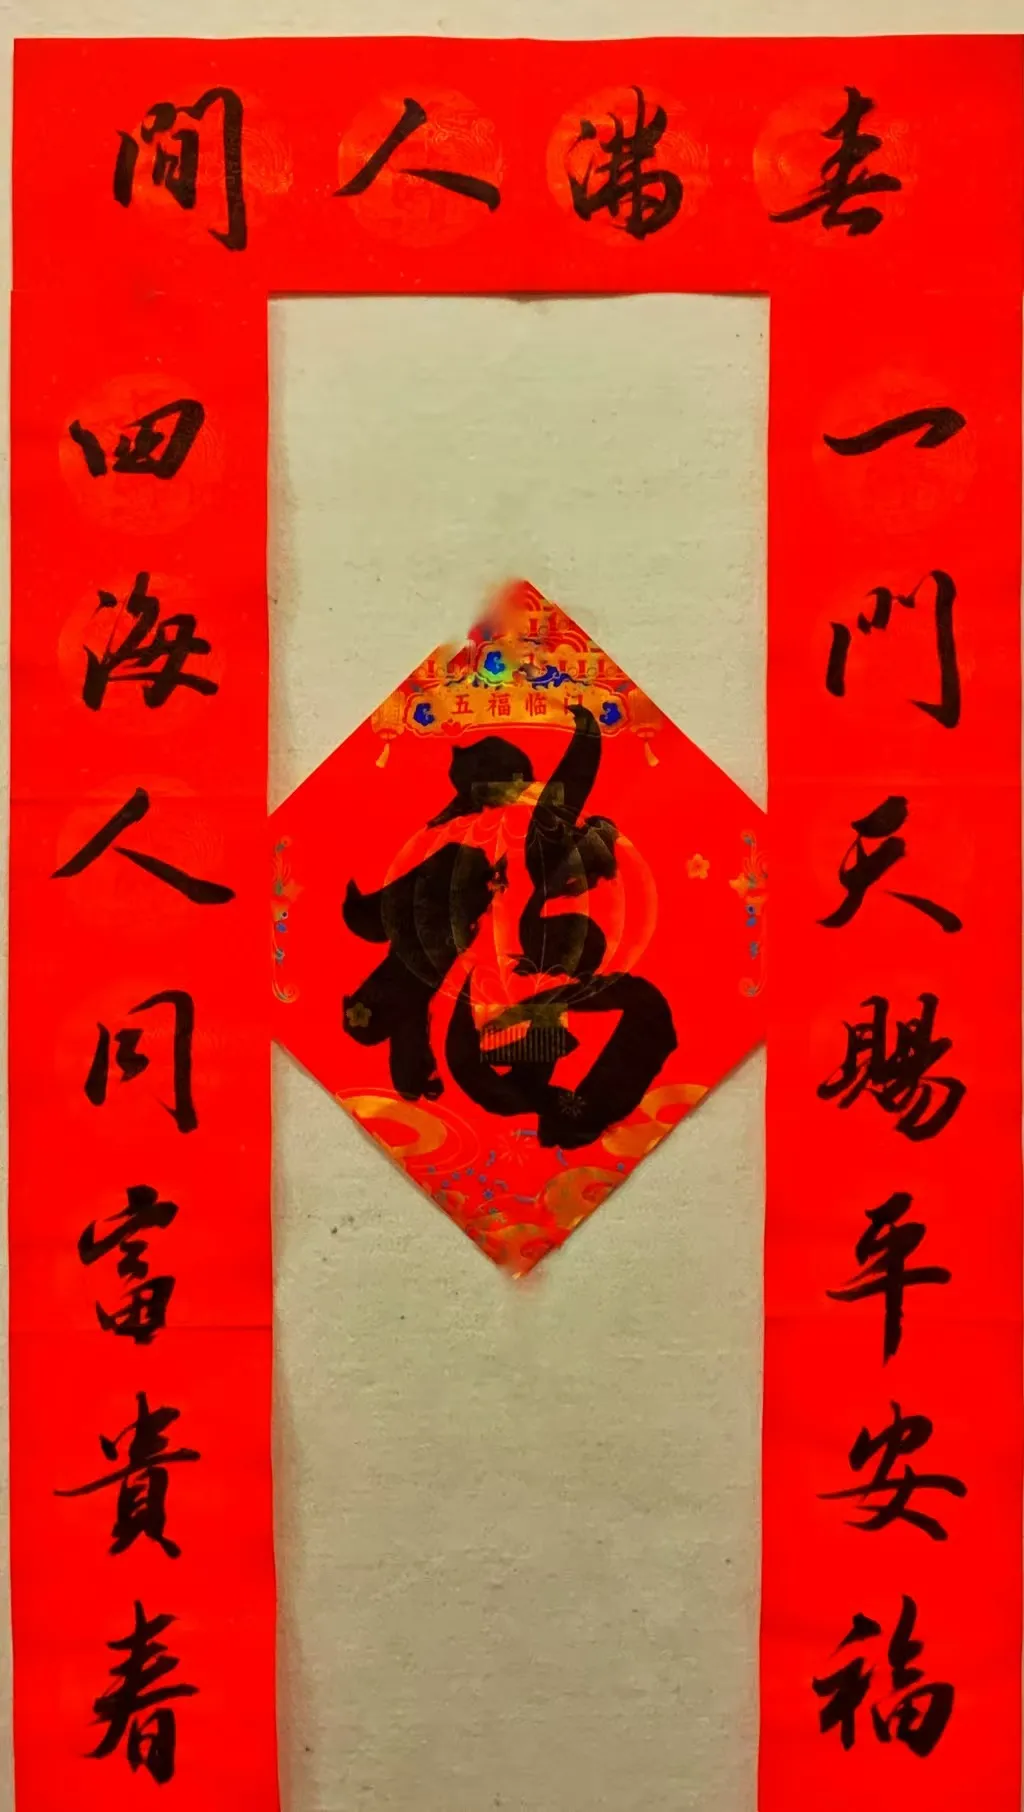 春滿人間
一門天賜平安福
四海人同富貴春
五福临门
福